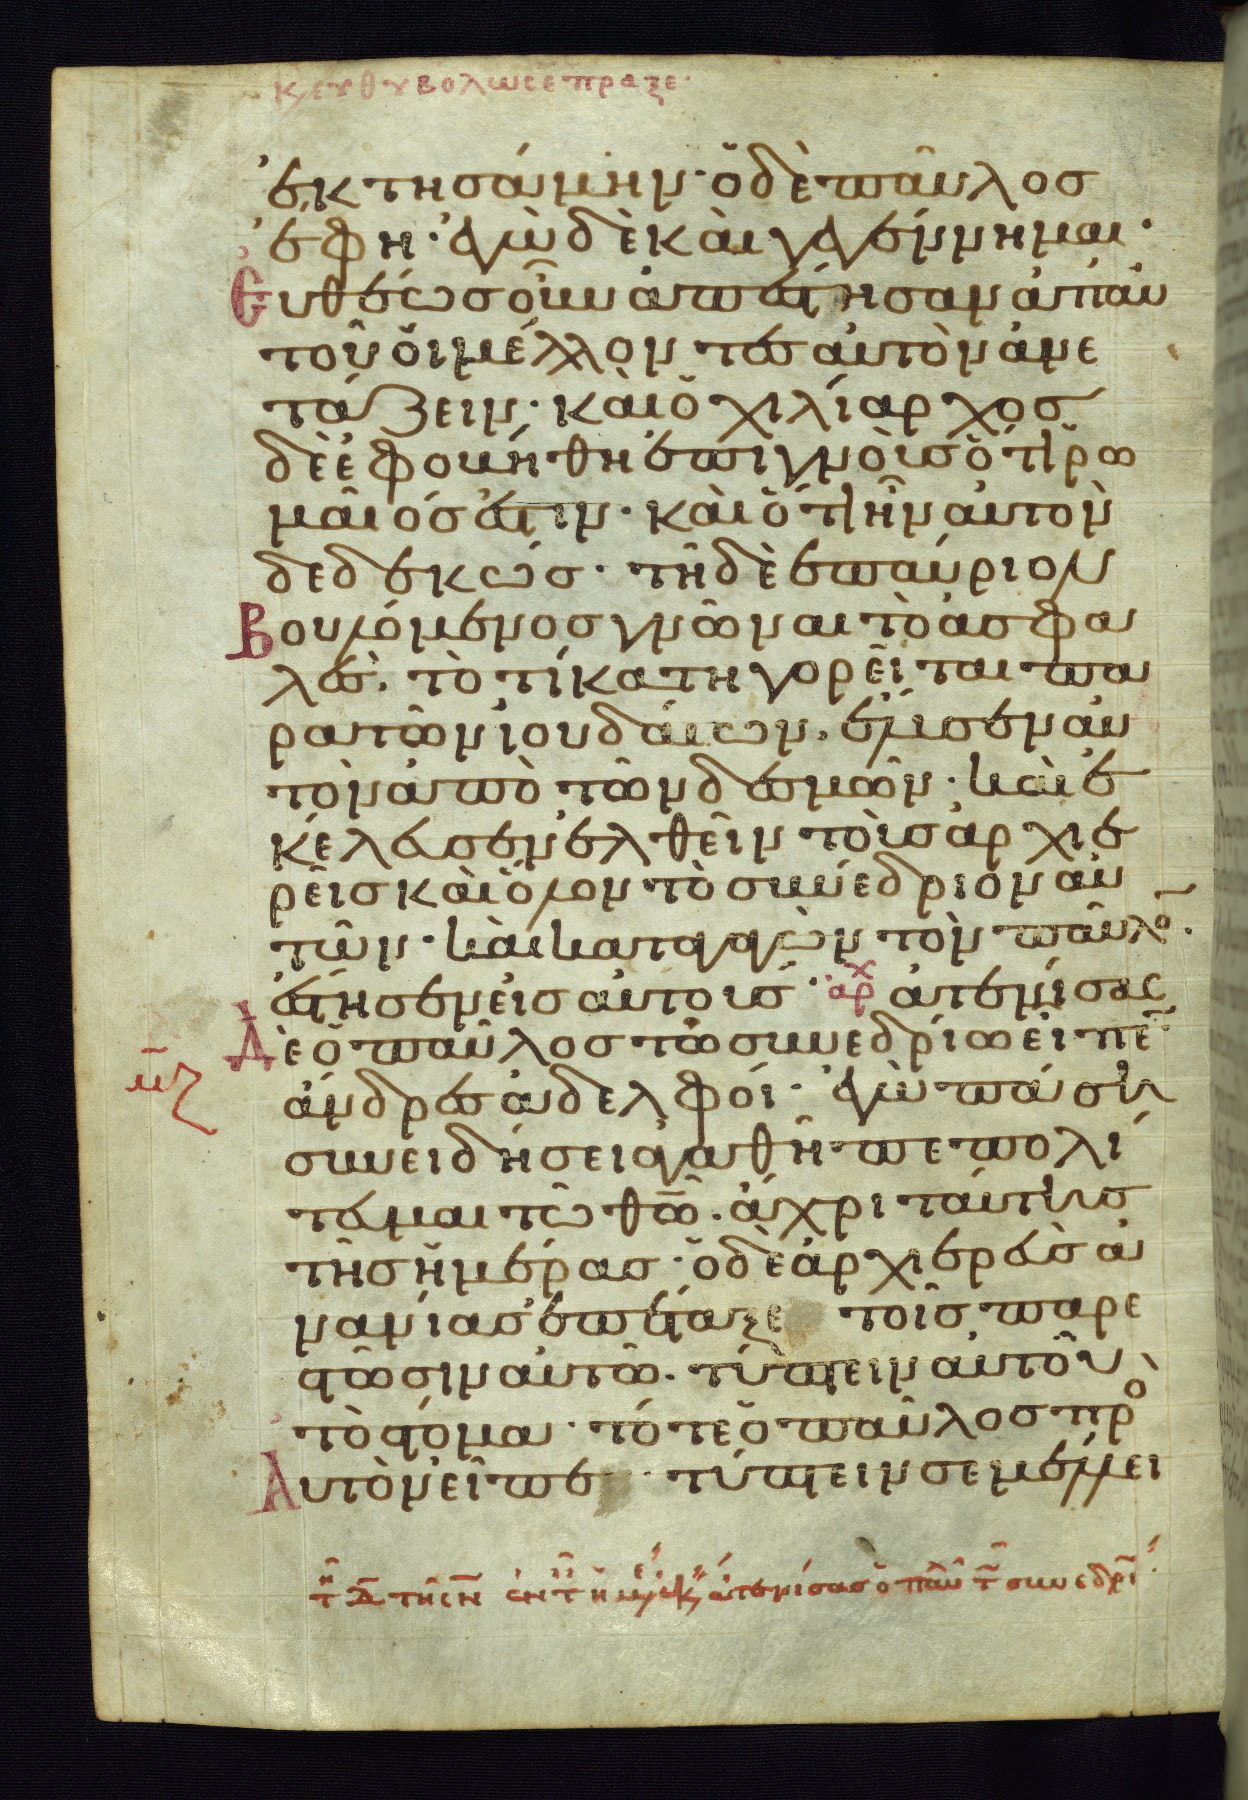 κ, ευθυβολωσ ἔπραξε·
ἐκτησάμην· ὁ δὲ παῦλοσ
ἔφη· ἐγὼ δὲ καὶ γεγέννημαι·
Ευθέωσ οὖν ἀπέστησαν ἀπ' αυ
τοῦ ὁι μέλλοντεσ αυτὸν ἀνε
τάζειν· καὶ ὁ χιλίαρχοσ
δὲ ἐφοβήθη ἐπιγνοὺσ ὅτι ῥω
μαῖόσ ἐστιν· καὶ ὅτι ἦν αυτὸν
δεδεκώσ· τῆ δὲ ἐπαύριον
Βουλόμενοσ γνῶναι τὸ ἀσφα
λέσ· τὸ τί κατηγορεῖται πα
ρα τῶν ἰουδαίων· ἔλυσεν αυ
τὸν ἀπὸ τῶν δεσμῶν· καὶ ἐ
κέλευσεν ἐλθεῖν τοὺσ ἀρχιε
ρεῖσ καὶ ὅλον τὸ συνέδριον αυ
τῶν· καὶ καταγαγὼν τὸν παῦλο̄·
ἔστησεν εἰσ αυτούσ· ἀρχ ἀτενίσασ
Δὲ ὁ παῦλοσ τῶ συνεδρίω εἶπε̄
ἄνδρεσ ἀδελφοί· ἐγὼ πάση
συνειδήσει ἀγαθῆ πεπολί
τευμαι τῶ θῶ̄· ἄχρι ταύτησ
τῆσ ἡμέρασ· ὁ δὲ ἀρχιερεὺσ ἀ
νανίασ ἐπέταξε τοῖσ παρε
στῶσιν αυτῶ· τύπτειν αυτοῦ
τὸ στόμα· τότε ὁ παῦλοσ πρὸ
Αυτὸν εἶπε· τύπτειν σε μέλλει